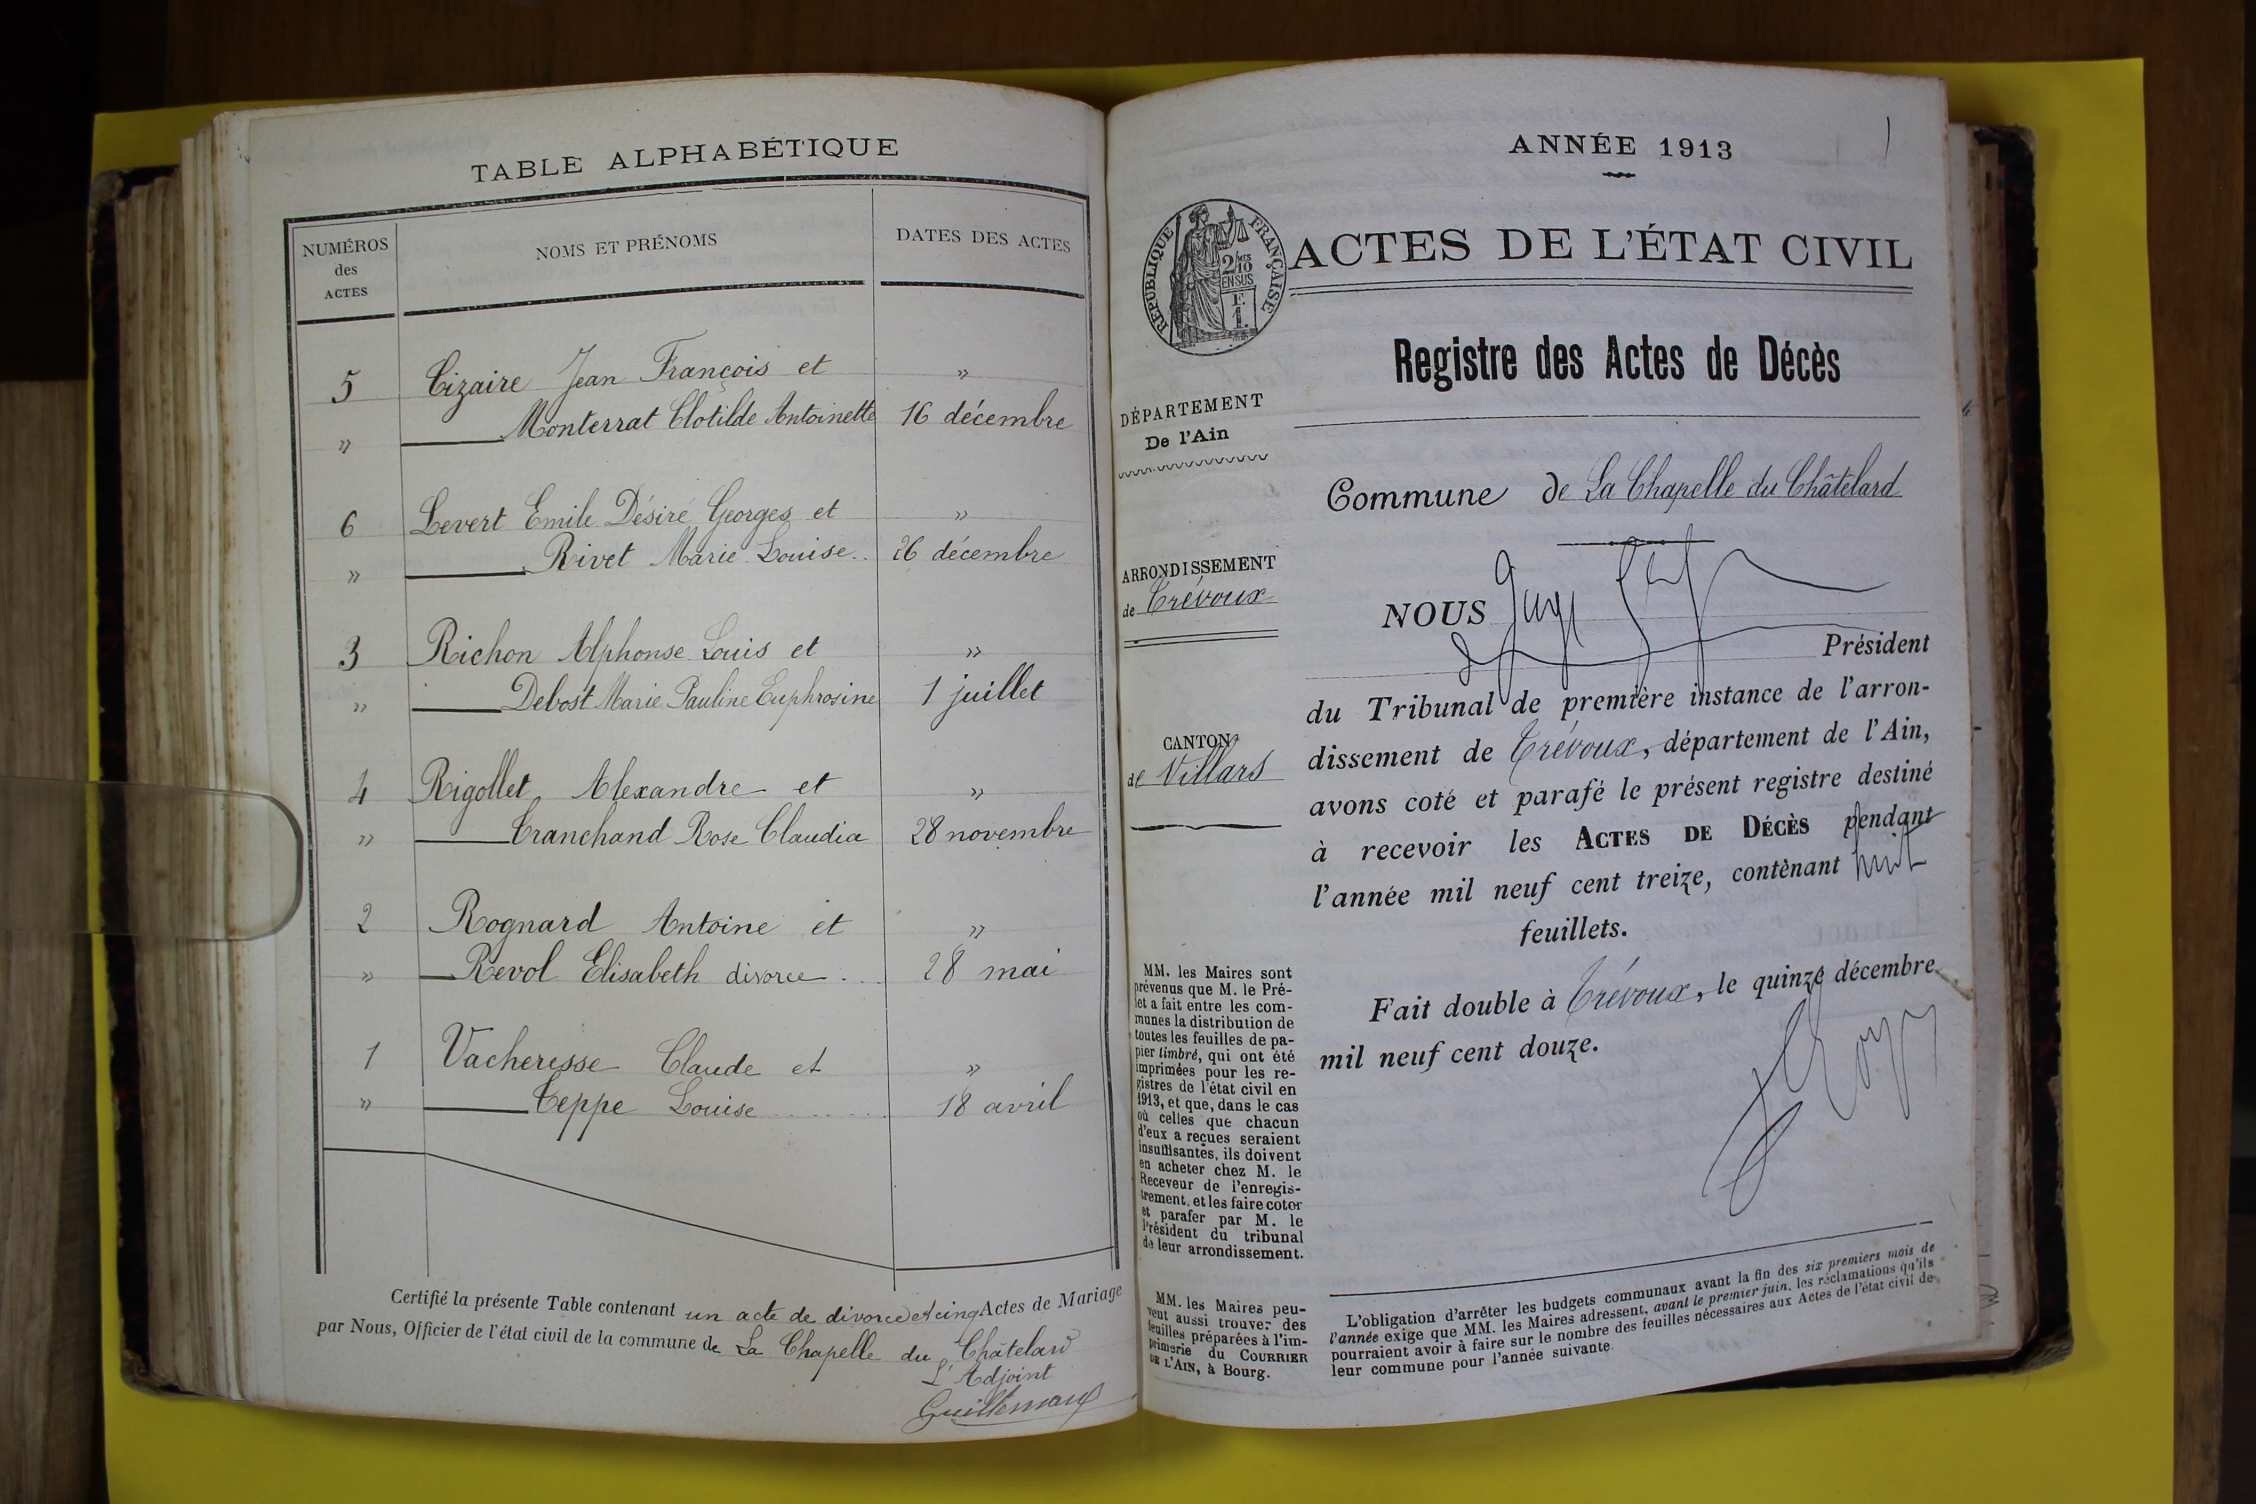 TABLE ALPHABÉTIQUE
NUMÉROS
des
ACTES
NOMS ET PRÉNOMS
DATES DES ACTES
5 Cizaire Jean François et "
" Monterrat Clotilde Antoinette 16 décembre
6 Levert Emile Désiré Georges et "
" Rivet Marie Louise 26 décembre
3 Richon Alphonse Louis et "
" Debost Marie Pauline Euphrosine 1 juillet
4 Rigollet Alexandre et "
" Tranchand Rose Claudia 28 novembre
2 Rognard Antoine et "
" Revol Elisabeth divorce 28 mai
1 Vacheresse Claude et "
" Teppe Louise 18 avril
Certifié la présente Table contenant un acte de divorce et cinq Actes de Mariage
par Nous, Officier de l'état civil de la commune de La Chapelle du Châtelard
L'Adjoint
Guillemaud
ANNÉE 1913
1
RÉPUBLIQUE FRANÇAISE
2/10MES
EN SUS
F.
1.
ACTES DE L'ÉTAT CIVIL
Registre des Actes de Décès
DÉPARTEMENT
De l'Ain
ARRONDISSEMENT
de Trévoux
CANTON
de Villars
MM. les Maires sont
prévenus que M. le Pré-
fet a fait entre les com-
munes la distribution de
toutes les feuilles de pa-
pier timbré, qui ont été
imprimées pour les re-
gistres de l'état civil en
1913, et que, dans le cas
où celles que chacun
d'eux a reçues seraient
insuffisantes, ils doivent
en acheter chez M. le
Receveur de l'enregis-
trement, et les faire coter
et parafer par M. le
Président du tribunal
de leur arrondissement.
MM. les Maires peu-
vent aussi trouver des
feuilles préparées à l'im-
primerie du COURRIER
DE L'AIN, à Bourg.
Commune de La Chapelle du Châtelard
NOUS
Président
du Tribunal de première instance de l'arron-
dissement de Trévoux, département de l'Ain,
avons coté et parafé le présent registre destiné
à recevoir les ACTES DE DÉCÈS pendant
l'année mil neuf cent treize, contenant huit
feuillets.
Fait double à Trévoux, le quinze décembre
mil neuf cent douze.
L'obligation d'arrêter les budgets communaux avant la fin des six premiers mois de
l'année exige que MM. les Maires adressent, avant le premier juin, les réclamations qu'ils
pourraient avoir à faire sur le nombre des feuilles nécessaires aux Actes de l'état civil de
leur commune pour l'année suivante.